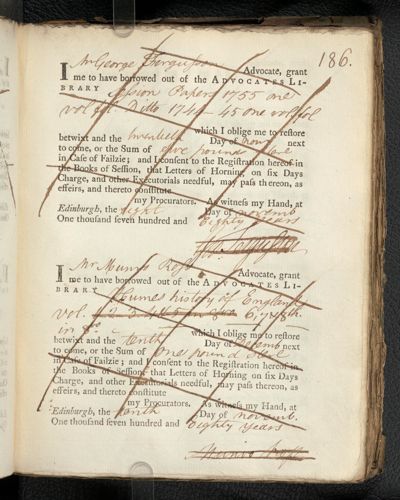 186.
I Mr George Fergusson Advocate, grant
me to have borrowed out of the ADVOCATES LI-
BRARY Session Papers 1755 one
vol fol. Ditto 1744-45 one vol fol
which I oblige me to restore
betwixt and the twentieth Day of novr next
to come, or the Sum of five pounds Sterl
in Case of Failzie; and I consent to the Registration hereof in
the Books of Session, that Letters of Horning on six Days
Charge, and other Executorials needful, may pass thereon, as
effeirs, and thereto constitute
my Procurators. As witness my Hand, at
Edinburgh, the eight Day of novemb.
One thousand seven hundred and Eighty Years
Geo. Fergusson
I Mr Munro Ross Advocate, grant
me to have borrowed out of the ADVOCATES LI-
BRARY Humes history of England
vol. 1 2 3 4 & 5 in 8vo 6, 7 & 8th.
in 8o.
which I oblige me to restore
betwixt and the tenth Day of decemb next
to come, or the Sum of one pound Sterl
in Case of Failzie; and I consent to the Registration hereof in
the Books of Session, that Letters of Horning on six Days
Charge, and other Executorials needful, may pass thereon, as
effeirs, and thereto constitute
my Procurators. As witness my Hand, at
Edinburgh, the tenth Day of novemb.
One thousand seven hundred and Eighty Years
Munro Ross